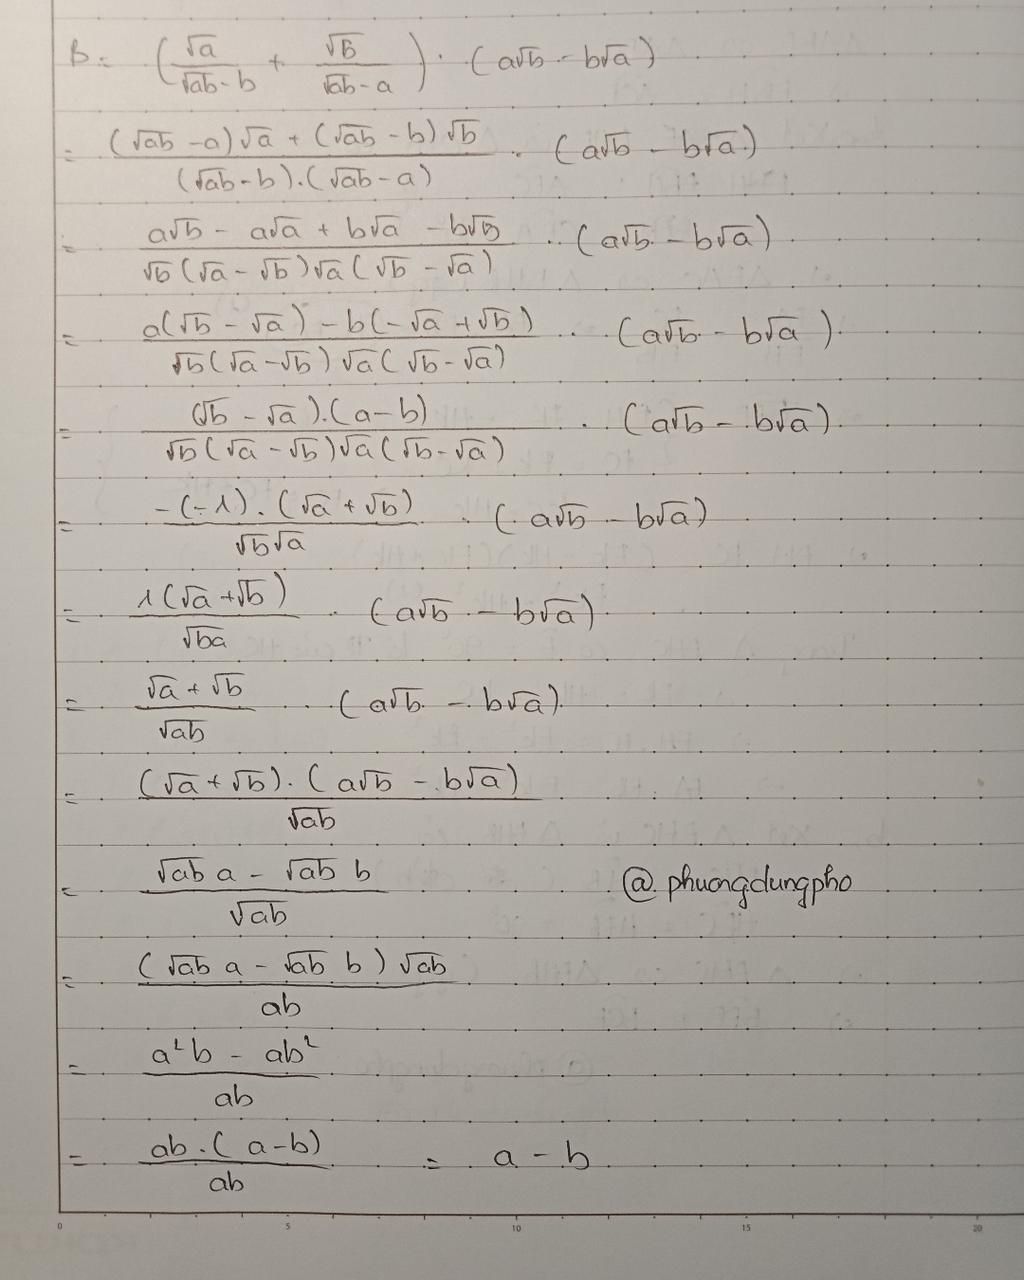 B = (√a/(√ab - b) + √b/(√ab - a)) · (a√b - b√a)
= ((√ab - a)√a + (√ab - b)√b)/((√ab - b).(√ab - a)) · (a√b - b√a)
= (a√b - a√a + b√a - b√b)/(√b(√a - √b)√a(√b - √a)) · (a√b - b√a)
= (a(√b - √a) - b(-√a + √b))/(√b(√a - √b)√a(√b - √a)) · (a√b - b√a)
= ((√b - √a).(a - b))/(√b(√a - √b)√a(√b - √a)) · (a√b - b√a)
= (-(-1).(√a + √b))/(√b√a) · (a√b - b√a)
= (1(√a + √b))/√ba · (a√b - b√a)
= (√a + √b)/√ab · (a√b - b√a)
= ((√a + √b).(a√b - b√a))/√ab
= (√ab a - √ab b)/√ab @phuongdungpho
= ((√ab a - √ab b)√ab)/ab
= (a²b - ab²)/ab
= (ab.(a - b))/ab = a - b
0 5 10 15 20